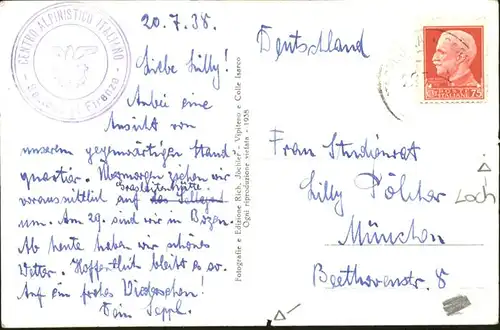 CENTRO ALPINISTICO ITALIANO
Firenze
20.7.38.
Liebe Lilly!
Anbei eine
Ansicht von
unserem gegenwärtigen Stand-
quartier. Übermorgen ziehen wir
Grasleitenhütte
voraussichtlich auf
um. Am 29. sind wir in Bozen.
Ab heute haben wir schönes
Wetter. Hoffentlich bleibt es so.
Auf ein frohes Wiedersehen!
Dein Seppl.
Fotografie e Edizione Rich. Jöchler - Vipiteno e Colle Isarco
Ogni riproduzione vietata - 1938
Deutschland
75
Frau Studienrat
Lilly Pölcher
Loch
München
Beethovenstr. 8